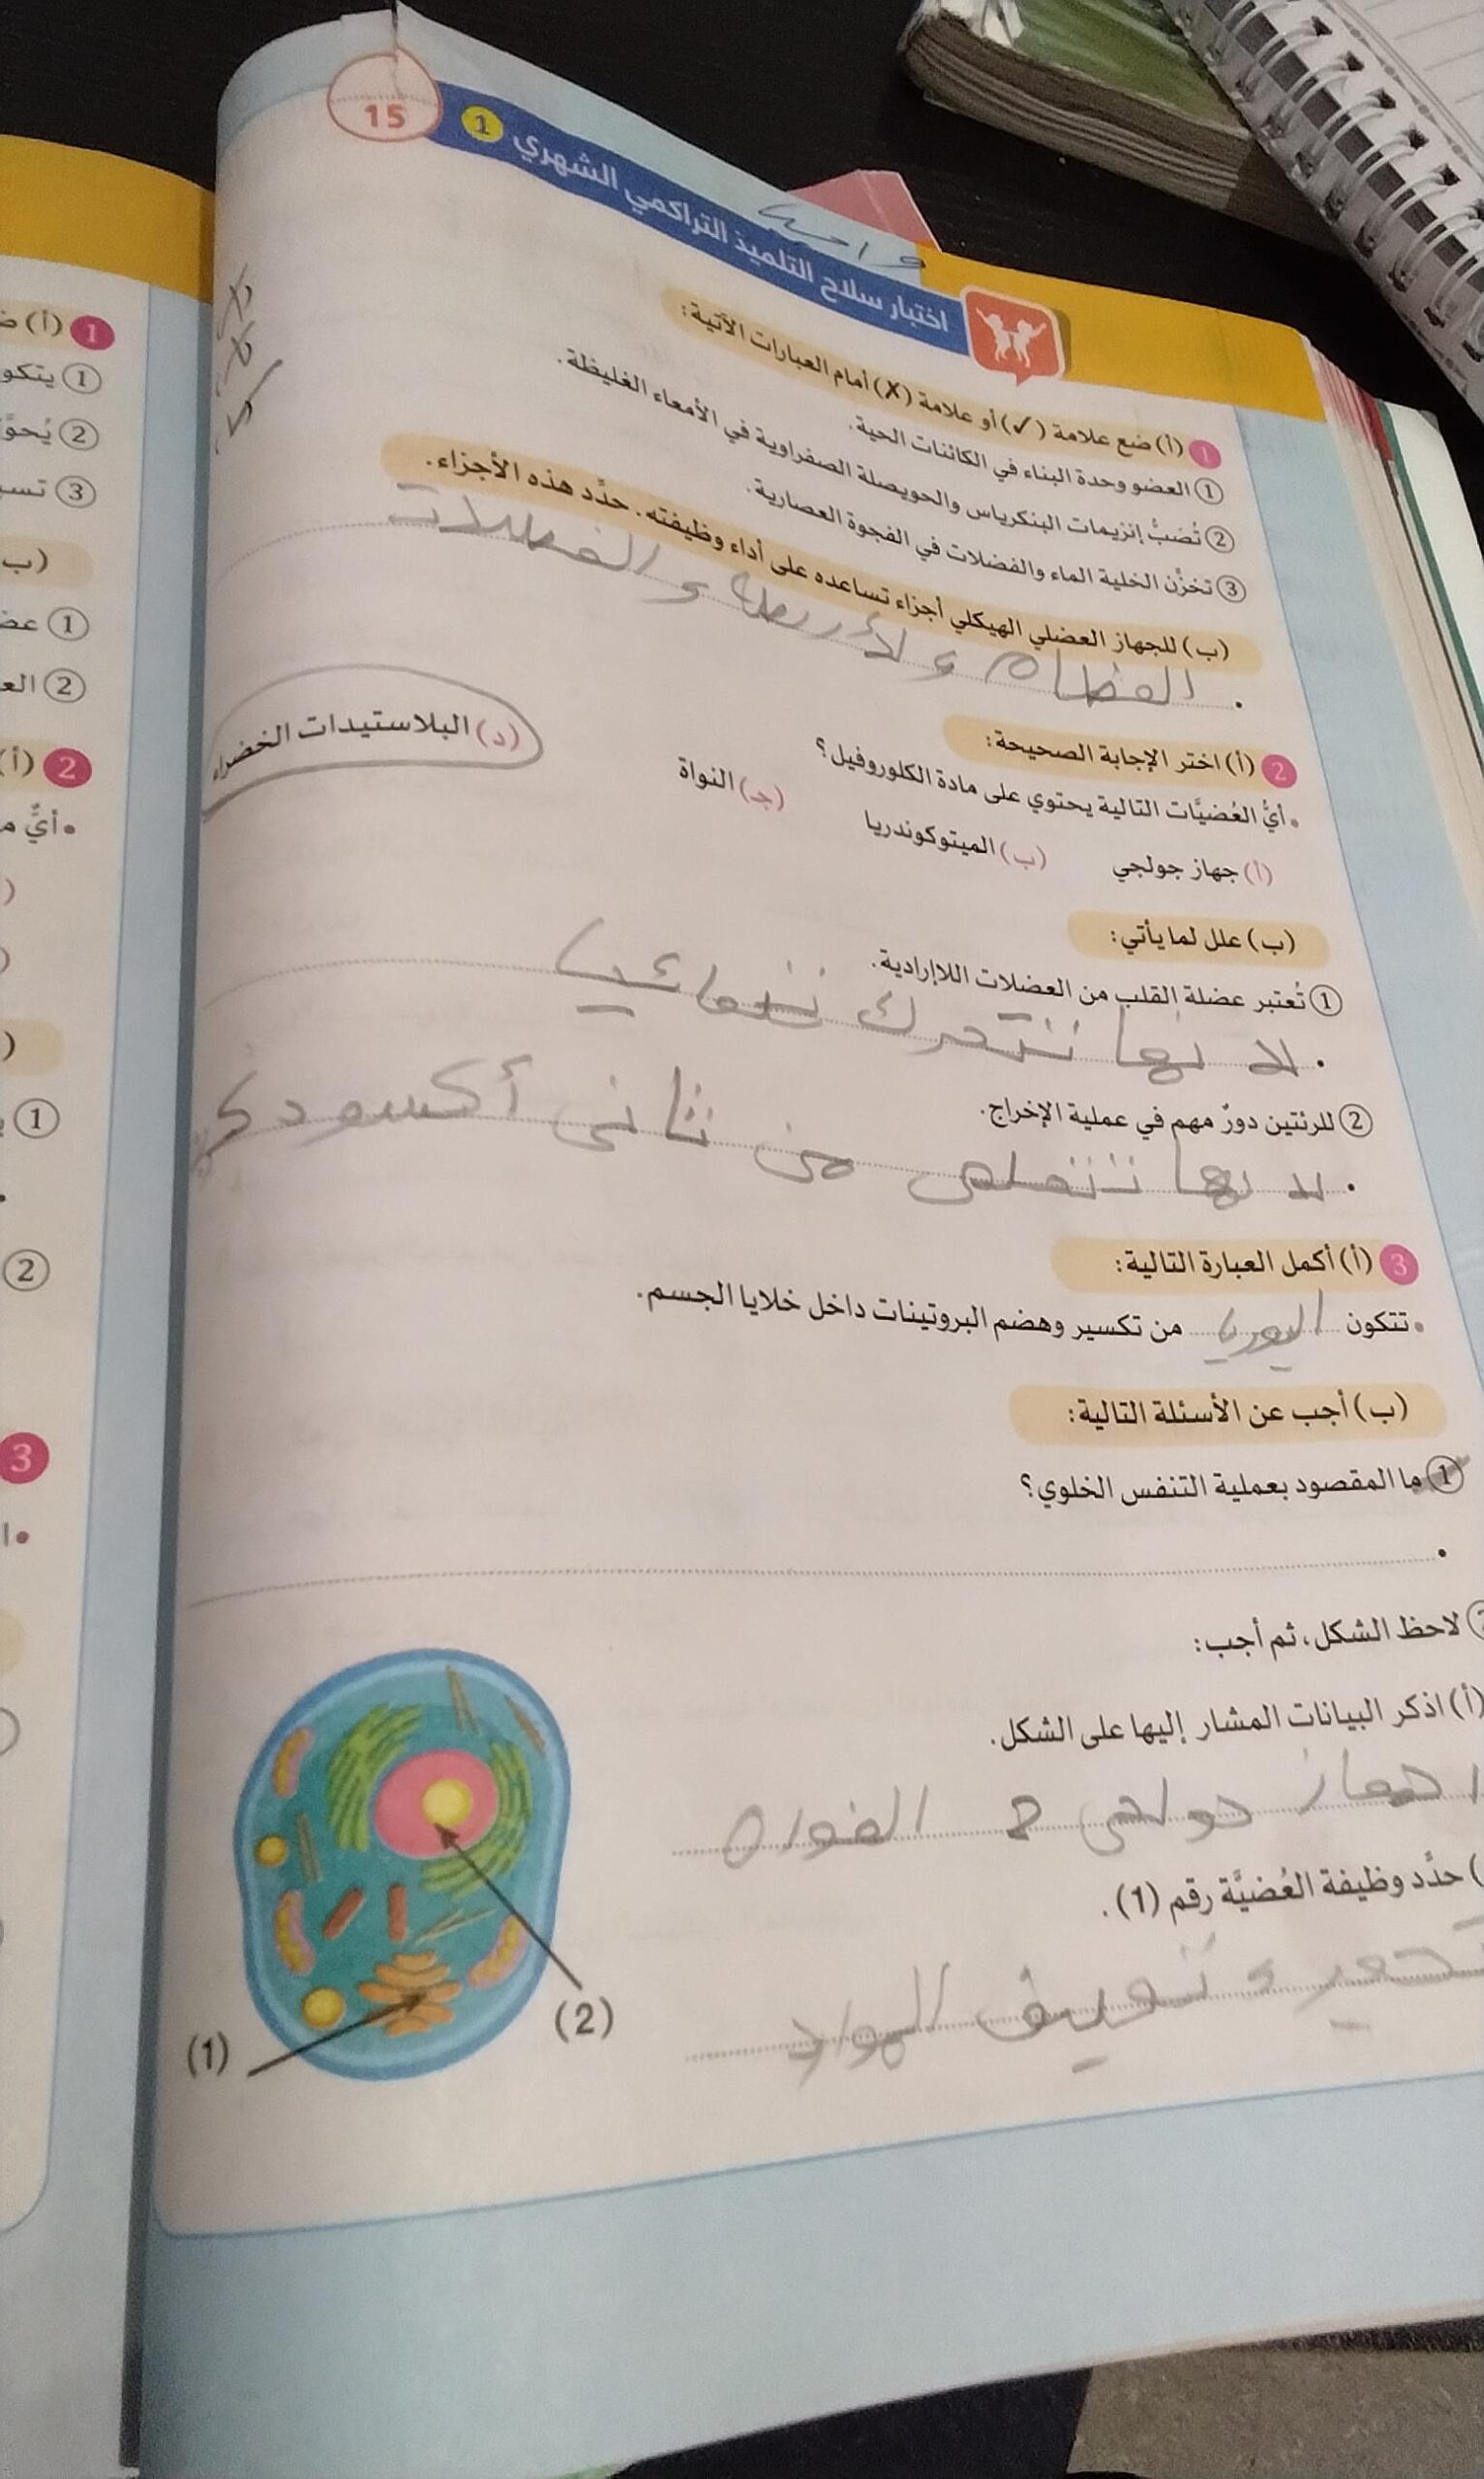 15
اختبار سلاح التلميذ التراكمي الشهري 1
1 (أ) ضع علامة (✓) أو علامة (X) أمام العبارات الآتية:
① العضو وحدة البناء في الكائنات الحية.
② تُصَبُّ إنزيمات البنكرياس والحويصلة الصفراوية في الأمعاء الغليظة.
③ تخزِّن الخلية الماء والفضلات في الفجوة العصارية.
(ب) للجهاز العضلي الهيكلي أجزاء تساعده على أداء وظيفته. حدِّد هذه الأجزاء.
العظام و الأربطة و العضلات
2 (أ) اختر الإجابة الصحيحة:
• أيُّ العُضيَّات التالية يحتوي على مادة الكلوروفيل؟
(أ) جهاز جولجي (ب) الميتوكوندريا (جـ) النواة (د) البلاستيدات الخضراء
(ب) علل لما يأتي:
① تُعتبر عضلة القلب من العضلات اللاإرادية.
لا نها تتحرك تلقائيا
② للرئتين دورٌ مهم في عملية الإخراج.
لا نها تتخلص من ثانى أكسود
3 (أ) أكمل العبارة التالية:
• تتكون اليوريا من تكسير وهضم البروتينات داخل خلايا الجسم.
(ب) أجب عن الأسئلة التالية:
① ما المقصود بعملية التنفس الخلوي؟
لاحظ الشكل، ثم أجب:
(أ) اذكر البيانات المشار إليها على الشكل.
جولجى 2 النواه
حدِّد وظيفة العُضيَّة رقم (1).
و تغليف المواد
(1)
(2)
1 (أ)
①
②
③
(ب)
①
②
2 (أ)
• أيٌّ
①
②
3